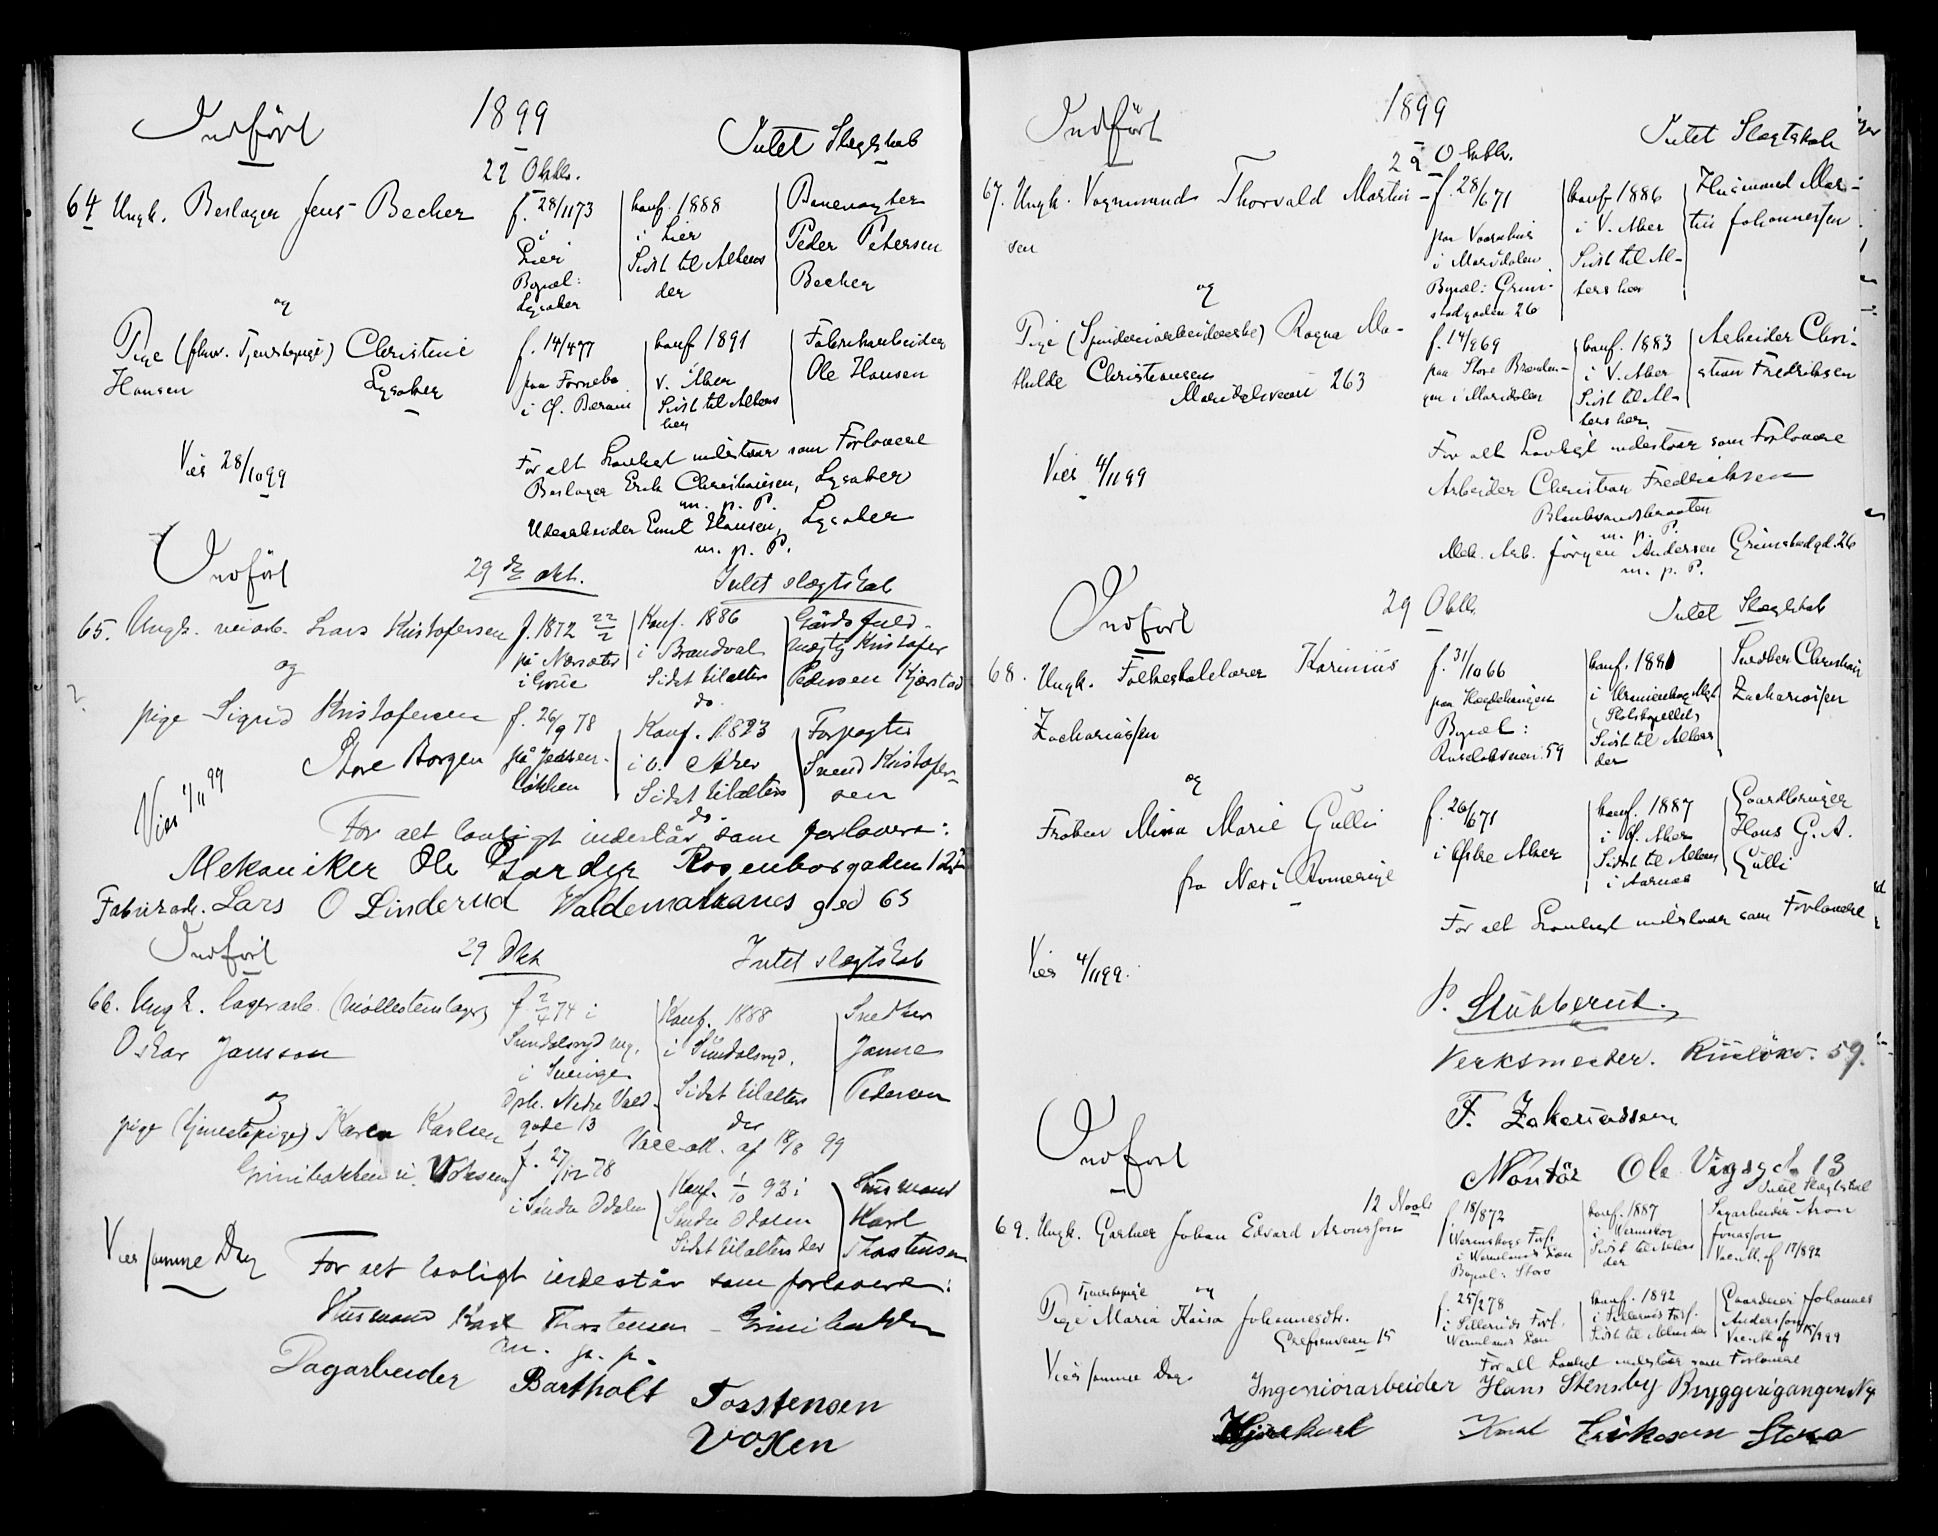 1899
Indført Intet Slægtskab
22 Oktbr.
64 Ungk. Beslager Jens Becher f. 28/11 73 i Lier Bopæl: Lysaker
konf. 1888 i Lier Sidst til Alters der
Banevogter Peder Petersen Becher
og
Pige (fhv. Tjenestepige) Christine Hansen Lysaker
f. 14/4 77 paa Fornebo i Ø. Bærum
konf 1891 V. Aker Sidst til Alters her
Fabrikarbeider Ole Hansen
Viet 28/10 99
For alt Lovligt indestaar som Forlovere
Beslager Erik Christiansen, Lysaker
m. p. P.
Udearbeider Emil Hansen, Lysaker
m. p. P.
Indført 29 de okt. Intet slægtskab
65. Ungk. veiarb. Lars Kristofersen f. 1872 22/2 på Næroset i Grue
Konf. 1886 i Brandval Sidst tilalters do.
Gårdsfuldmægtig Kristofer Pedersen Kjærstad
og
pige Sigrid Kristofersen Store Borgen
f. 26/9 78 på Jensenløkken
Konf. 1893 i v. Aker Sidst tilalters do.
Forpagter Svend Kristofersen
Viet 1/11 99
For alt lovligt indestår som forlovere:
Mekaniker Ole Garder Rosenborgaden 12
Fabrikarb. Lars O Linderud Valdemartranes ged 65
Indført 29 Okt Intet slægtskab
66. Ungk. lagerarb. (møllestenlager) Oskar Jansson
f 2/4 74 i Sundalsryd i Sverige Opk. Nedre Voldgade 13
Konf. 1888 i Sundalsryd. Sidst tilalters der
Snedker Janne Pedersen
Vacc.att. af 18/8 99
og
pige (tjenestepige) Karen Karlsen Grinibakken i Voksen
f. 27/12 78 i Søndre Odalen
Konf. 1/10 93 i Søndre Odalen Sidst tilalters der
Husmand Karl Thorstensen
Viet samme Dag
For alt lovligt indestår som forlovere:
Husmand Karl Thorstensen - Grinibakken
m. p. p.
Dagarbeider Bartholt Torstensen
Voxen
1899
Indført Intet Slægtskab
22 Oktbr.
67. Ungk. Vognmand Thorvald Martinsen
f. 28/6 71 paa Vaaenhus i Maridalen Bopæl: Grimstadgaden 26
konf 1886 i V. Aker Sidst til Alters her
Husmand Martin Johannessen
og
Pige (Spinderiarbeiderske) Ragna Mathilde Christiansen
Maridalsveien 263
f. 14/2 69 paa Store Brændengen i Maridalen
konf. 1883 i V. Aker Sidst til Alters her
Arbeider Christian Fredriksen
Viet 4/11 99
For alt Lovligt indestaar som Forlovere
Arbeider Christian Fredriksen
Blankvandsbraaten
m. p. P.
Mek. Arb. Jørgen Andersen Grimstadgd. 26
m. p. P.
Indført 29 Oktbr Intet Slægtskab
68. Ungk. Folkeskolelærer Karinius Zachariassen
f. 31/10 66 paa Hægdehaugen Bopæl: Ruseløkveien 59
konf. 1881 i Uranienborg Mgt. (Slotskapellet) Sidst til Alters der
Snedker Christian Zachariassen
og
Frøken Mina Marie Gulli
fra Næs i Romerige
f. 26/6 71 i Østre Aker
konf. 1887 i Ø. Aker Sidst til Alters i Aarnæs
Gaardbruger Hans G. A. Gulli
Viet 4/11 99.
For alt Lovligt indestaar som Forlovere
P. Stubberud.
Verksmester. Ruseløkv. 59.
F. Zakariassen
Montør Ole Vigsgd. 13
Indført 12 Novbr Intet Slægtskab
69. Ungk. Gartner Johan Edvard Aronsson
f. 18/8 72 Wermskogs Fors. i Wermlands Län Bopæl: Storo
konf. 1887 i Wermskog Sidst til Alters der
Sagarbeider Aron Jonasson Vacc.att. af 17/8 92
og
Tjenestepige
Pige Maria Kaisa Johannesdtr.
Grefsenveien 15
f. 25/2 78 i Sillerruds Fors. Wermlands Län
konf. 1892 i Sillerruds Fors. Sidst til Alters der
Gaardeier Johannes Andersson Vacc.att. af 15/9 99
Viet samme Dag.
For alt Lovligt indestaar som Forlovere
Ingeniørarbeider Hans Stensby Bryggerigangen No 4
Knut Erikssen Storo